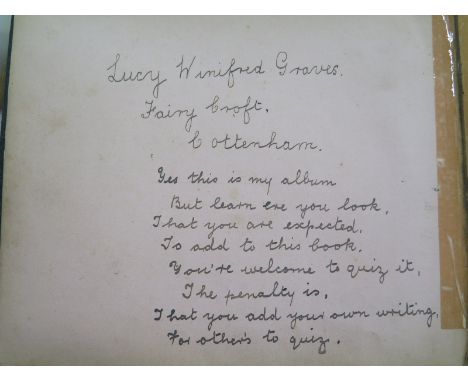 Lucy Winifred Graves.
Fairy Croft.
Cottenham.
Yes this is my album
But learn ere you look,
That you are expected,
To add to this book.
You're welcome to quiz it,
The penalty is,
That you add your own writing,
For other's to quiz.